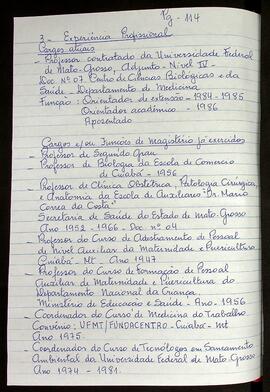 Pg - 114
3 - Experiência Profissional
Cargos atuais
- Professor contratado da Universidade Federal
de Mato-Grosso, Adjunto - Nível IV -
Doc Nº 07 Centro de Ciências Biológicas e da
Saúde - Departamento de Medicina
Função: Orientador de extensão - 1984 - 1985
Orientador acadêmico - 1986
Aposentado
Cargos e/ou Funções de Magistério já exercidos
- Professor de Segundo Grau
- Professor de Biologia da Escola de Comércio
de Cuiabá - 1956
- Professor de Clínica Obstétrica, Patologia Cirúrgica,
e Anatomia da Escola de Auxiliares "Dr. Mário
Correa da Costa"
Secretaria de Saúde do Estado de Mato-Grosso
Ano 1952 - 1966 - Doc nº 04
- Professor do Curso de Adestramento de Pessoal
de Nível Auxiliar da Maternidade e Puericultura
Cuiabá - Mt - Ano - 1947
- Professor do Curso de Formação de Pessoal
Auxiliar de Maternidade e Puericultura do
Departamento Nacional da Criança,
Ministério de Educação e Saúde - Ano - 1956
- Coordenador do Curso de Medicina do Trabalho
Convênio: UFMT/FUNDACENTRO - Cuiabá - Mt
Ano 1975
Coordenador do Curso de Tecnólogos em Saneamento
Ambiental da Universidade Federal de Mato Grosso
Ano 1974 - 1981.